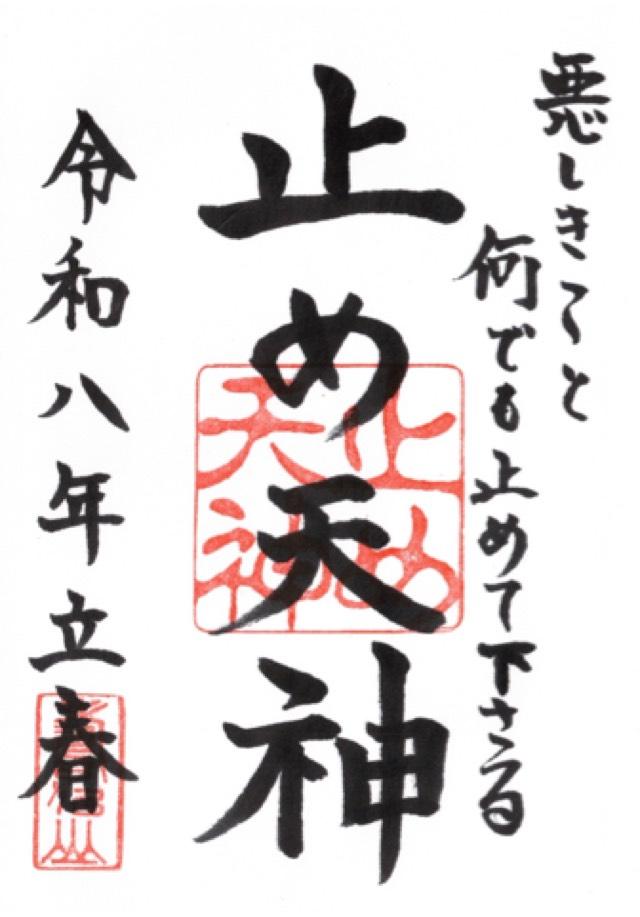 悪しきこと
何でも止めて下さる
止め天神
止め天神
令和八年立春